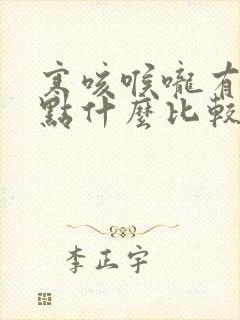 寒咳喉嚨有
點什麼比較
李正宇